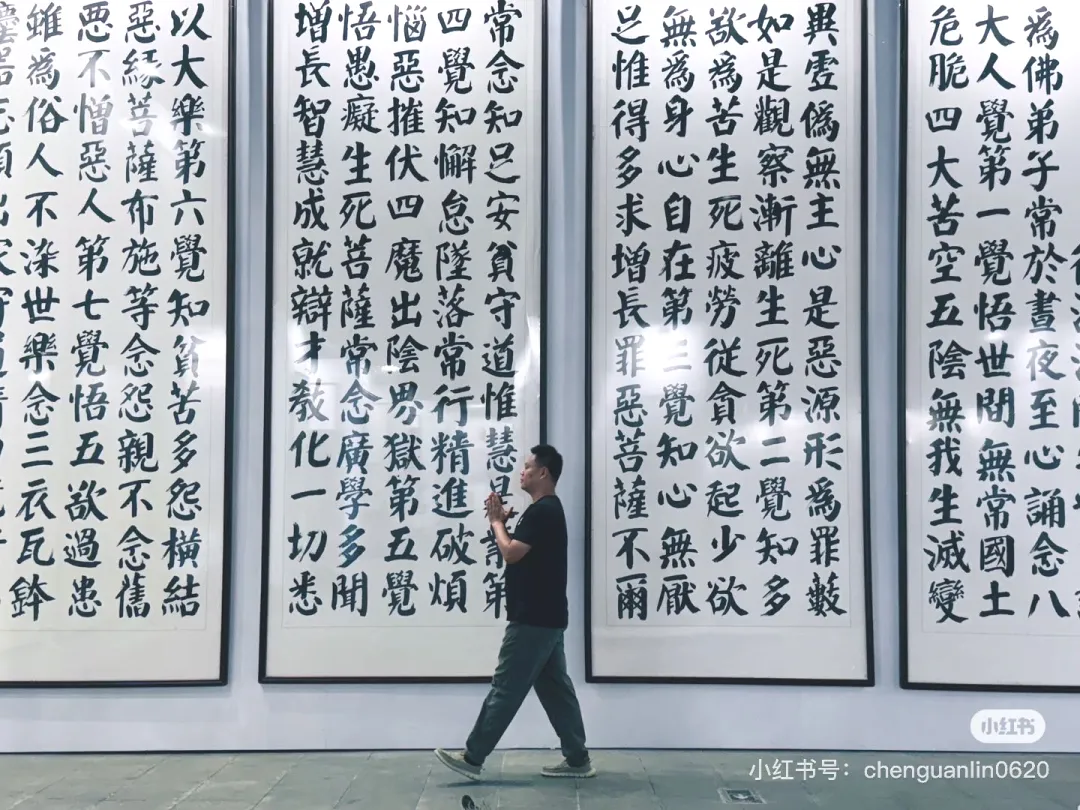 為佛弟子常於晝夜至心誦念八
大人覺第一覺悟世間無常國土
危脆四大苦空五陰無我生滅變
異虛偽無主心是惡源形為罪藪
如是觀察漸離生死第二覺知多
欲為苦生死疲勞從貪欲起少欲
無為身心自在第三覺知心無厭
足惟得多求增長罪惡菩薩不爾
常念知足安貧守道惟慧是第
四覺知懈怠墜落常行精進破煩
惱惡摧伏四魔出陰界獄第五覺
悟愚癡生死菩薩常念廣學多聞
增長智慧成就辯才教化一切悉
以大樂第六覺知貧苦多怨橫結
惡緣菩薩布施等念怨親不念舊
惡不憎惡人第七覺悟五欲過患
雖為俗人不染世樂念三衣瓦鉢
小红书
小红书号：chenguanlin0620